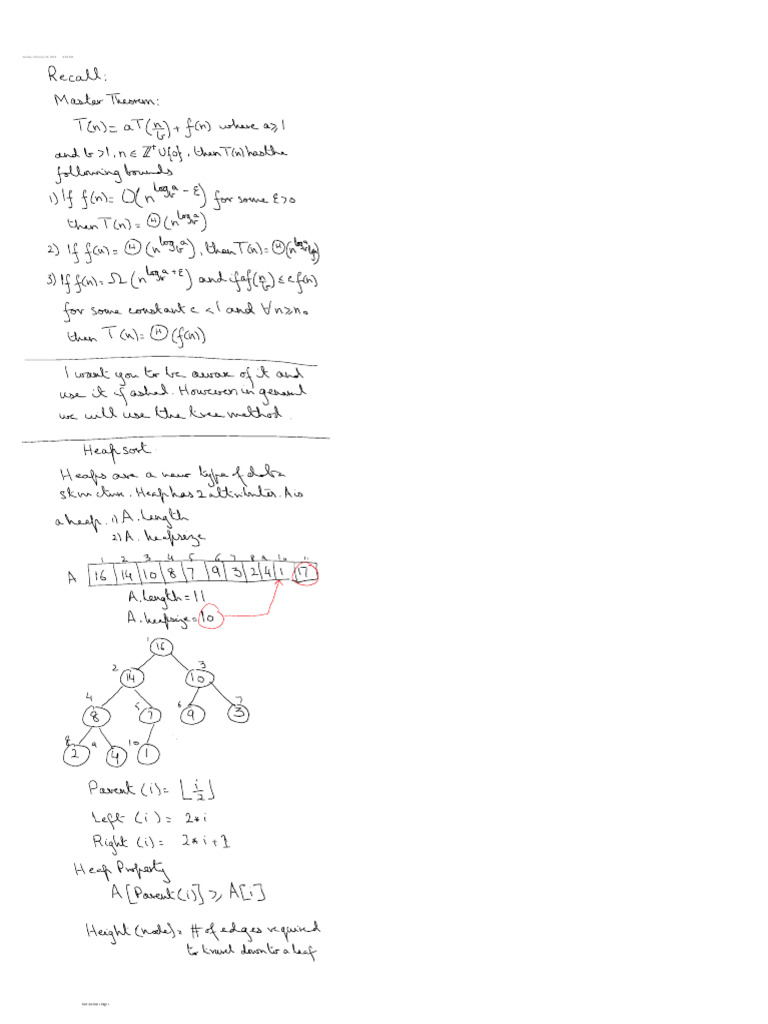 Recall:
Master Theorem:
T(n) = aT(n/b) + f(n) where a ≥ 1
and b > 1, n ∈ ℤ⁺ ∪ {0}, then T(n) has the
following bounds
1) If f(n) = O(n^(log_b a - ε)) for some ε > 0
then T(n) = Θ(n^(log_b a))
2) If f(n) = Θ(n^(log_b a)), then T(n) = Θ(n^(log_b a) lg n)
3) If f(n) = Ω(n^(log_b a + ε)) and if af(n/b) ≤ cf(n)
for some constant c < 1 and ∀ n ≥ n₀
then T(n) = Θ(f(n))
I want you to be aware of it and
use it if asked. However in general
we will use the tree method.
Heapsort
Heaps are a new type of data
structure. Heap has 2 attributes. A is
a heap. 1) A. length
2) A. heapsize
1 2 3 4 5 6 7 8 9 10 11
A 16 14 10 8 7 9 3 2 4 1 17
A.length = 11
A.heapsize = 10
1
16
2 3
14 10
4 5 6 7
8 7 9 3
8 9 10
2 4 1
Parent (i) = ⌊i/2⌋
Left (i) = 2*i
Right (i) = 2*i+1
Heap Property
A[Parent(i)] ≥ A[i]
Height(node) = # of edges required
to travel down to a leaf